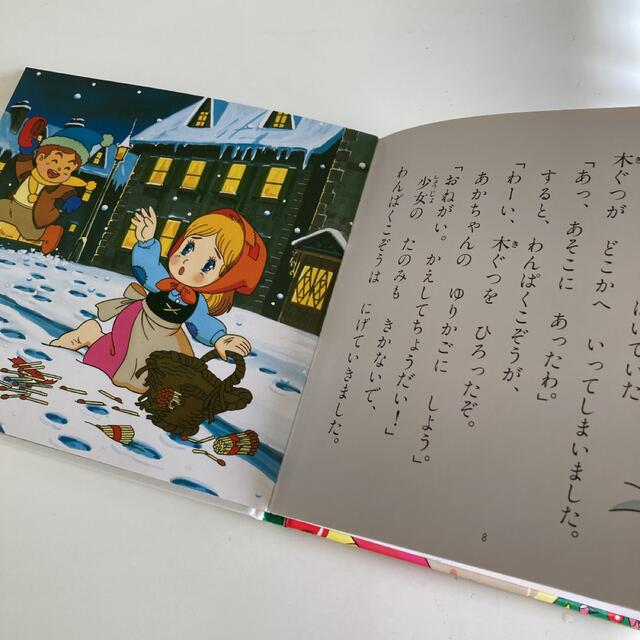 はいていた
木ぐつが どこかへ いってしまいました。
「あっ、あそこに あったわ。」
すると、わんぱくこぞうが、
「わーい、木ぐつを ひろったぞ。
あかちゃんの ゆりかごに しよう。」
「おねがい。かえしてちょうだい！」
少女の たのみも きかないで、
わんぱくこぞうは にげていきました。
8